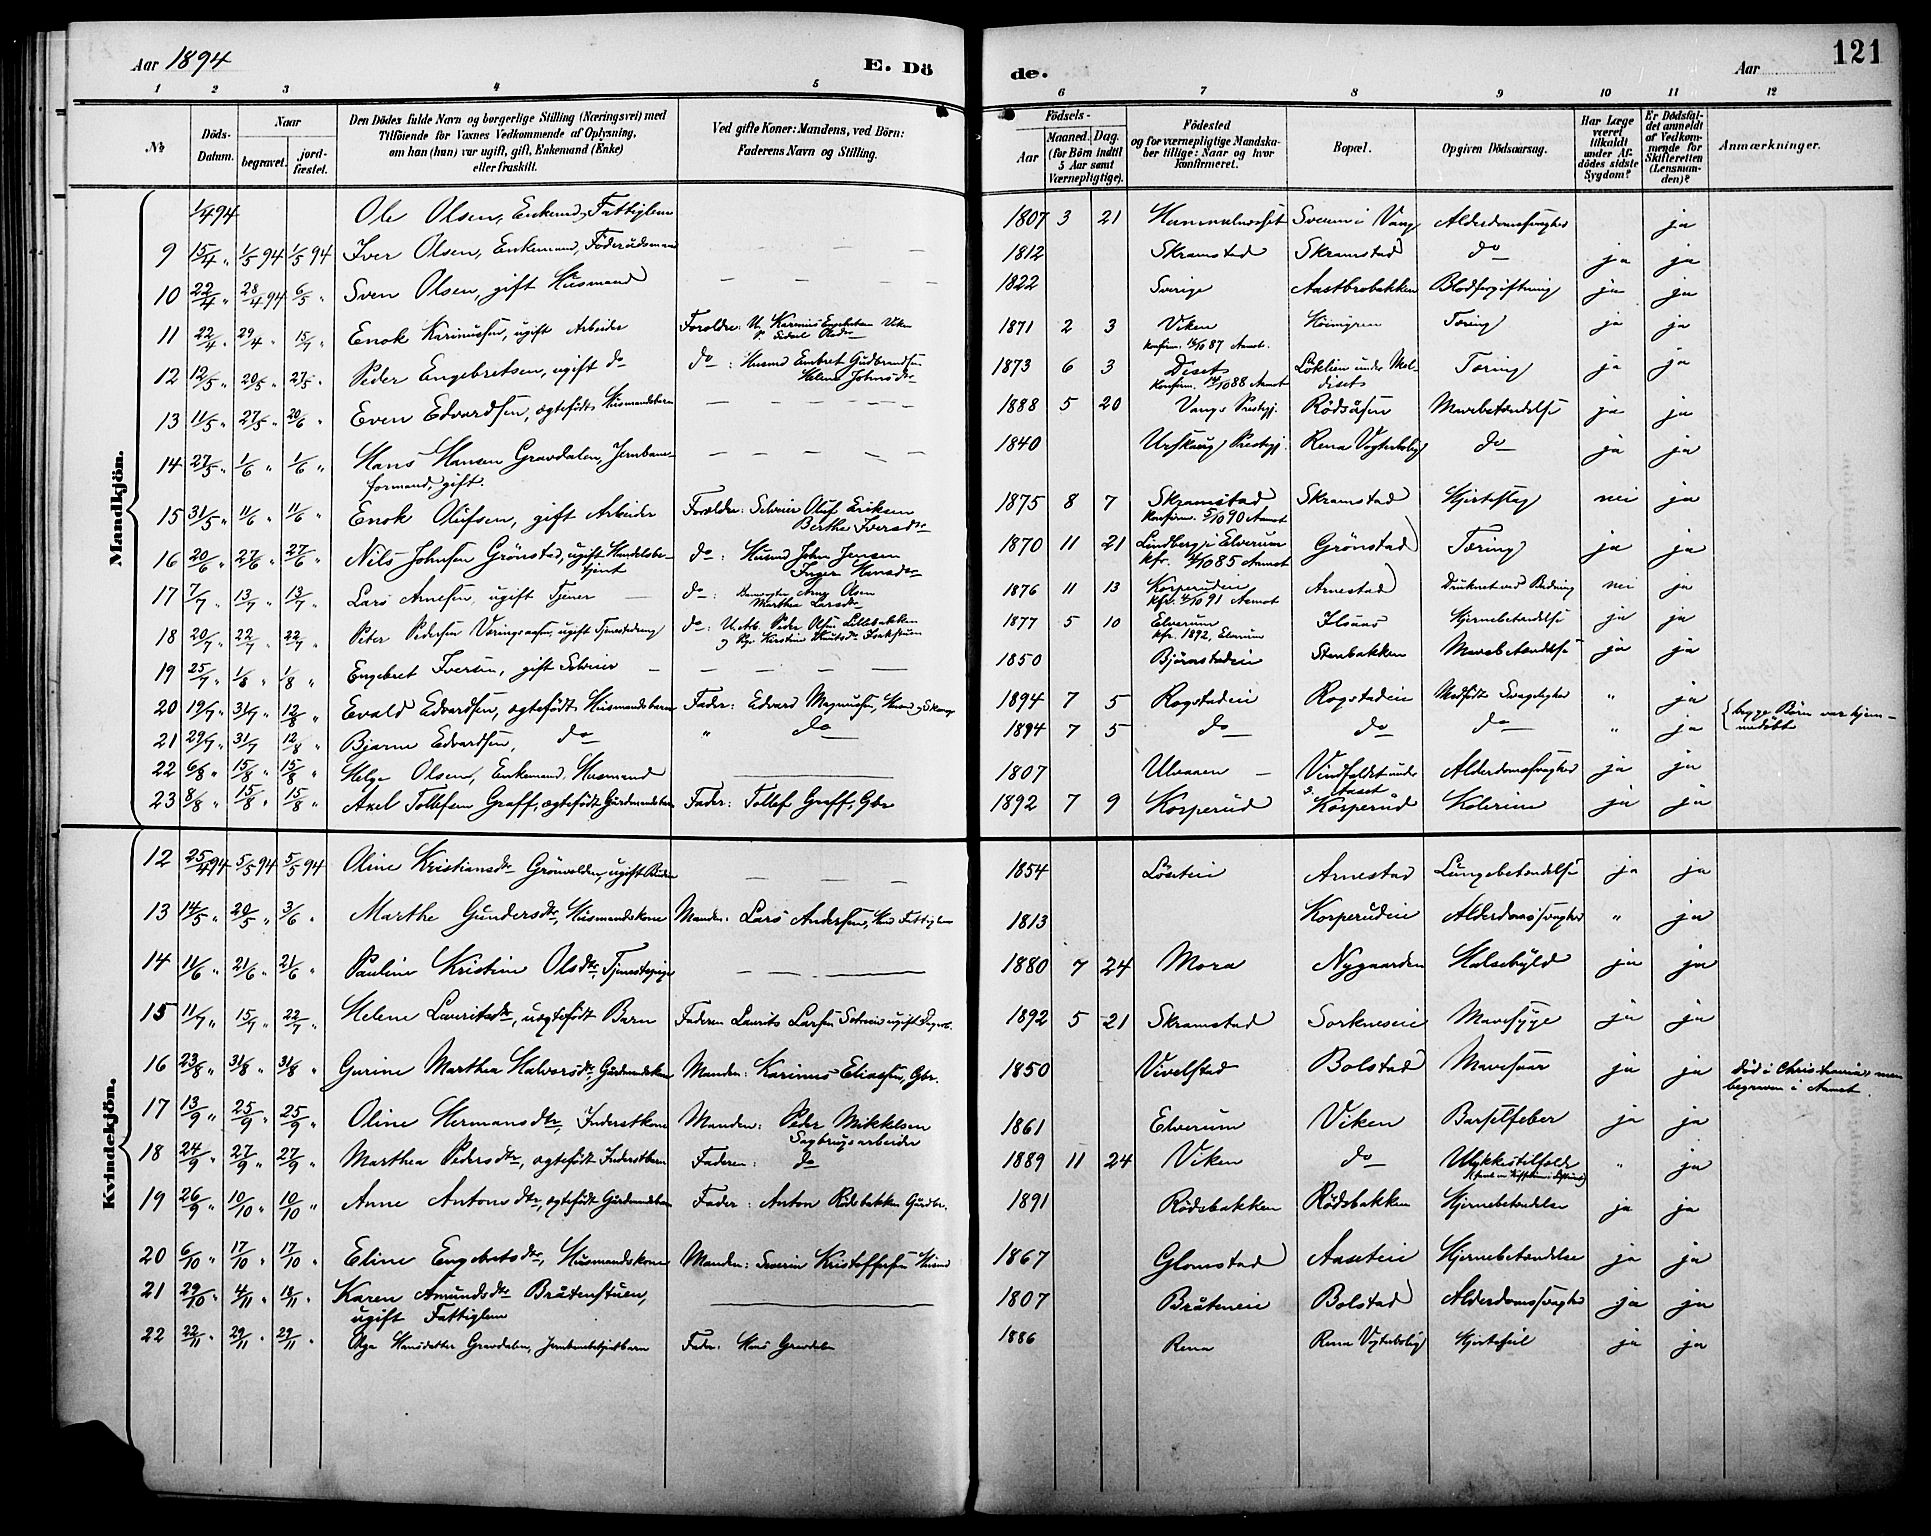 Aar 1894
E. Dö
de.
Aar
121
1 2 3 4 5 6 7 8 9 10 11 12
No
Döds-Datum.
Naar
begravet.
jord-fæstet.
Den Dödes fulde Navn og borgerlige Stilling (Næringsvei) med
Tilföiende for Voxnes Vedkommende af Oplysning,
om han (hun) var ugift, gift, Enkemand (Enke)
eller fraskilt.
Ved gifte Koner: Mandens, ved Börn:
Faderens Navn og Stilling.
Födsels-
Aar
Maaned. Dag.
(for Börn indtil
5 Aar samt
Værnepligtige).
Födested
og for værnepligtige Mandska-
ber tillige: Naar og hvor
konfirmeret.
Bopæl.
Opgiven Dödsaarsag.
Har Læge
været
tilkaldt
under Af-
dödes sidste
Sygdom?
Er Dödsfal-
det anmeldt
af Vedkom-
mende for
Skifteretten
(Lensman-
den)?
Anmærkninger.
Mandkjön.
1/4 94 Ole Olsen, Enkemd, Fattiglem 1807 3 21 Sveen i Vang Alderdomssvaghed ja
9 15/4 " 1/5 94 1/5 94 Iver Olsen, Enkemand, Föderaadsmand — — — 1812 Skramstad Skramstad do ja ja
10 22/4 " 28/4 94 6/5 " Sven Olsen, gift Husmand — — — 1822 Sverige Aastbrobakken Blodforgiftning ja ja
11 22/4 " 29/4 " 15/7 " Enok Karinusen, ugift Arbeider Forældre: U. Karinus Engebretsen Viken 1871 2 3 Viken Tæring ja ja
o. Sidsel Olsdr
konfirm. 16/10 87 Aamot.
12 12/5 " 20/5 " 27/5 " Peder Engebretsen, ugift do do: Husmd Embret Gudbrandsen 1873 6 3 Diset Löklien under Mel- Tæring ja ja
Helene Johnsdr
konfirm. 14/10 88 Aamot diset
13 11/5 " 27/5 " 20/6 " Even Edvardsen, ægtefödt Husmandsbarn — — — 1888 5 20 Vangs Prestgj. Rödsåsen Mavebetændelse ja ja
14 27/5 " 1/6 " 1/6 " Hans Hansen Gravdalen, Jernbane- — — — 1840 Urskoug Prestgj. Rena Vogterbolig do ja ja
formand, gift.
15 31/5 " 11/6 " 11/6 " Enok Olufsen, gift Arbeider Forældre: Selveier Oluf Eriksen 1875 8 7 Skramstad Skramstad Hjerteslag nei ja
Berthe Iversdr
konfirm. 5/10 90 Aamot
16 20/6 " 27/6 " 27/6 " Nils Johnsen Grönstad, ugift Handelsbe- do: Husmd John Jensen 1870 11 21 Lindberg i Elverum Grönstad Tæring ja ja
tjent Inger Hansdr
kfr. 4/10 85 Aamot
17 7/7 " 13/7 " 13/7 " Lars Arnesen, ugift Tjener — do: Arne Olsen 1876 11 13 Korperudeie Arnestad Druknet ved Badning nei ja
Marthea Larsdr
kfr. 4/10 91 Aamot
18 20/7 " 22/7 " 22/7 " Peter Pedersen Væringsaasen, ugift Tjenestedreng do: U. Arb. Peder Olsen Lillebakken 1877 5 10 Elverum Ilsaas Hjernebetændelse ja ja
kfr. 1892, Elverum
19 25/7 " 1/8 " 1/8 " Engebret Iversen, gift Selveier — — — 1850 Björnstadeie Stenbakken Mavebetændelse ja ja
20 19/7 " 31/7 " 12/8 " Evald Edvardsen, ægtefödt Husmandsbarn Fader: Edvard Magnussen, Husmd 1894 7 5 Rogstadeie Rogstadeie Medfödt Svagelighed " ja
{begge Börn var hjem-
medöbte
21 29/7 " 31/7 " 12/8 " Bjarne Edvardsen, do " do 1894 7 5 do do do " ja
22 6/8 " 15/8 " 15/8 " Helge Olsen, Enkemand, Husmand — 1807 Ulvaaen — Vindfaldet under Alderdomssvaghed ja ja
s. Aaset
23 8/8 " 15/8 " 15/8 " Axel Tollefsen Graff, ægtefödt Gårdmandsbarn Fader: Tollef Graff, Gbr 1892 7 9 Korperud Korperud Kolerine ja ja
Kvindekjön.
12 25/4 94 5/5 94 5/5 94 Oline Kristiansdr Grönvolden, ugift — — — 1854 Löseteie Arnestad Lungebetændelse ja ja
13 14/5 " 20/5 " 3/6 " Marthe Gundersdr, Husmandskone Manden: Lars Andersen, Hmd Fattiglem 1813 Korperudeie Alderdomssvaghed " ja
14 11/6 " 21/6 " 21/6 " Pauline Kristine Olsdr, Tjenestepige — — — 1880 7 24 Mora Nygaarden Halsebyld ja ja
15 11/7 " 15/7 " 22/7 " Helene Lauritsdr, uægtefödt Barn Faderen Laurits Larsen Selveier ugift 1892 5 21 Skramstad Sorkneseie Mavesyge ja ja
16 23/8 " 31/8 " 31/8 " Gurine Marthea Halvorsdr, Gårdmandskone Manden: Karinus Eliassen, Gbr. 1850 Vivelstad Bolstad Mavesaar ja ja död i Christiania men
begraven i Aamot.
17 13/9 " 25/9 " 25/9 " Oline Hermansdr, Inderstkone Manden: Peder Mikkelsen 1861 Elverum Viken Barselfeber ja ja
Sagbrugsarbeider
18 24/9 " 27/9 " 27/9 " Marthea Pedersdr, ægtefödt Inderstbarn Faderen: do 1889 11 24 Viken do Ulykkestilfælde " ja
19 26/9 " 10/10 " 10/10 " Anne Antonsdr, ægtefödt Gårdmandsbarn Fader: Anton Rödsbakken Gårdbr. 1891 Rödsbakken Rödsbakken Hjernebetændelse ja ja
20 6/10 " 17/10 " 17/10 " Eline Engebretsdr, Husmandskone Manden: Severin Kristoffersen Husmd 1867 Glomstad Aaseteie Hjernebetændelse ja ja
21 29/10 " 4/11 " 18/11 " Karen Amundsdr Bråtenstuen, — 1807 Bråteneie Bolstad Alderdomssvaghed ja ja
ugift Fattiglem
22 22/11 " 29/11 " 29/11 " Olga Hansdatter Gravdalen, Fader: Hans Gravdalen 1886 Rena Rena Vogterbolig Hjertefeil ja ja